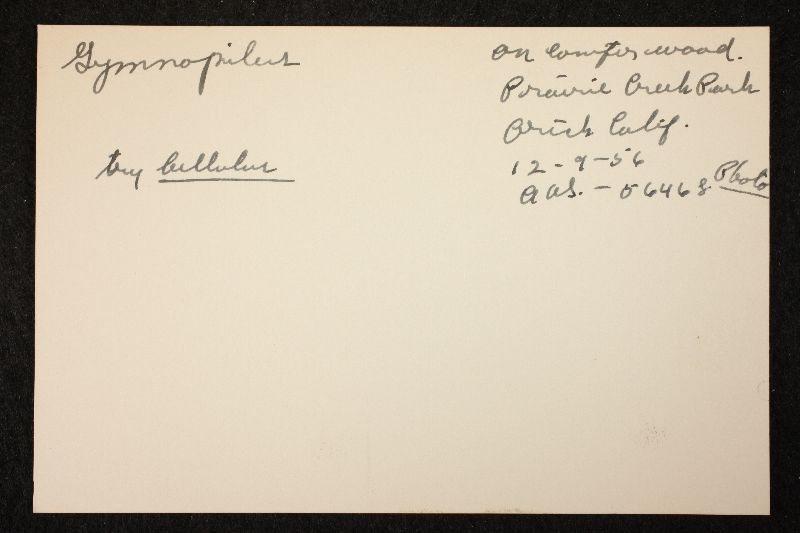 Gymnopilus
try bellulus
on conifer wood.
Prairie Creek Park
Orick Calif.
12-9-56
AHS. - 56468 Photo